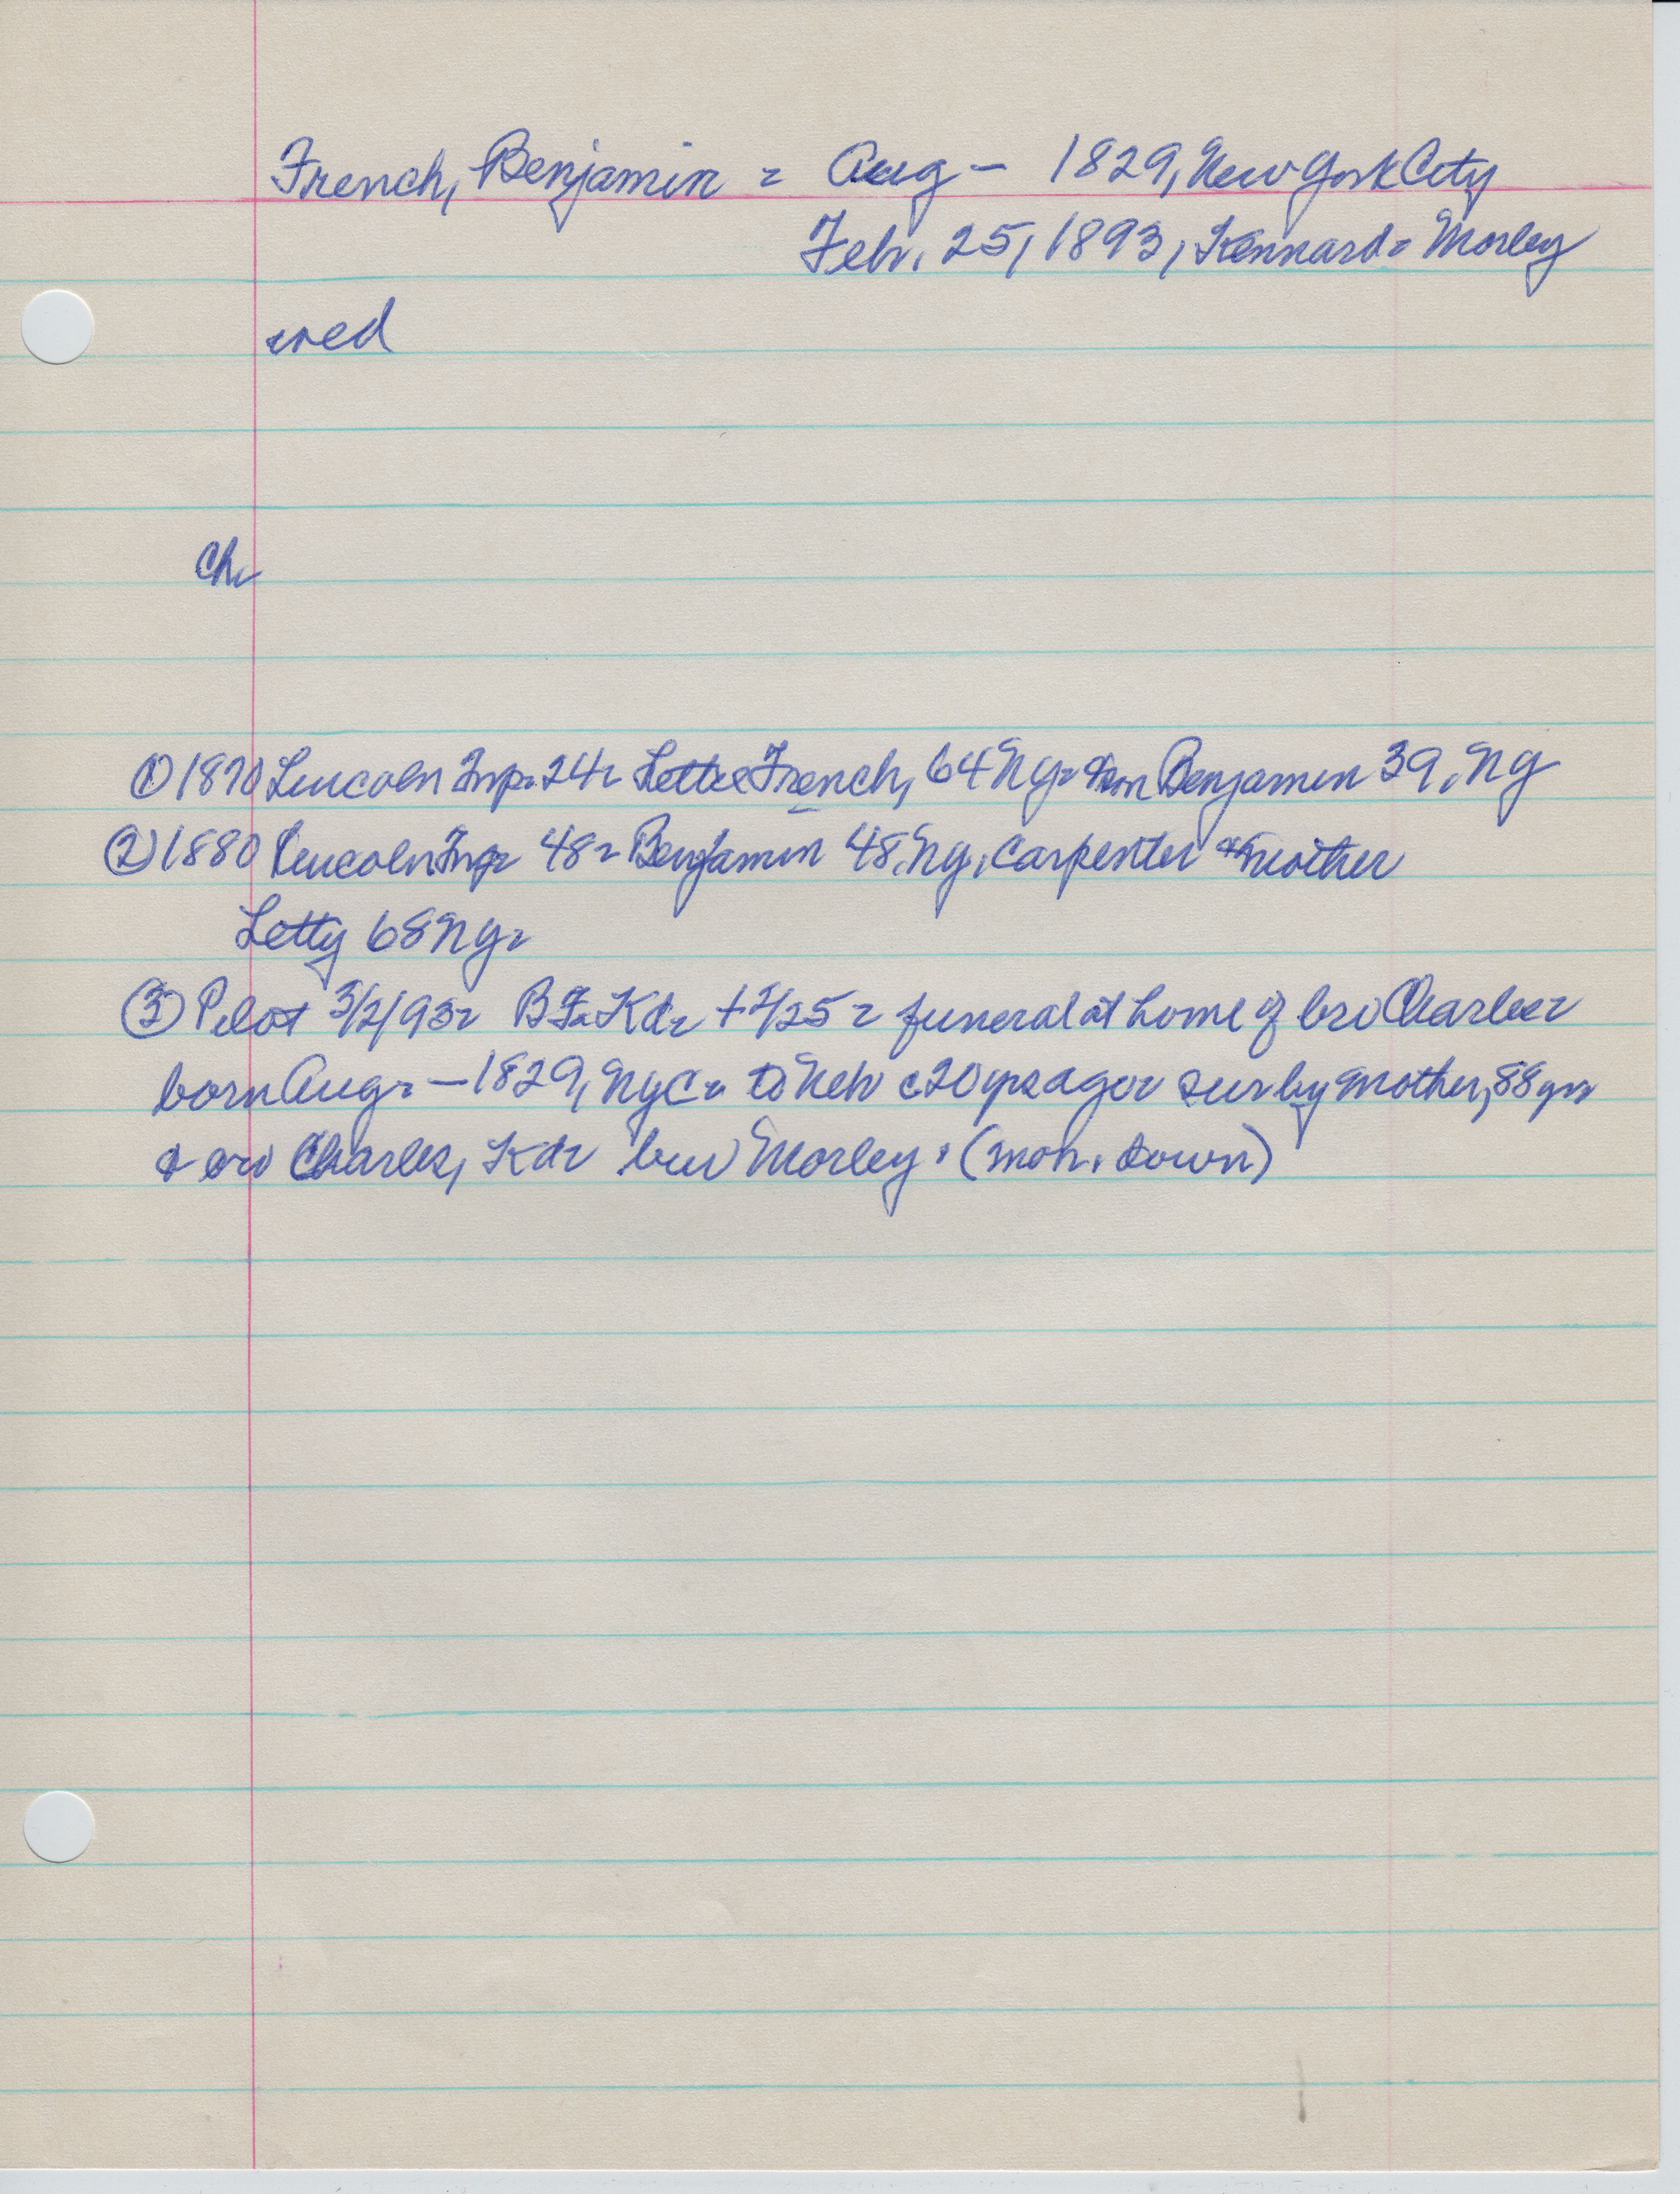 French, Benjamin = Aug - 1829, New York City
Feb. 25, 1893, Kennard = Morley
wed
Ch.
① 1870 Lincoln Twp. 24 = Lettie French, 64 NY = + son Benjamin 39, NY
② 1880 Lincoln Twp = 48 = Benjamin 48, NY, carpenter + mother
Letty 68 NY =
③ Pilot 3/2/93 = BF = Kd = + 2/25 = funeral at home of bro Charles =
born Aug = - 1829, NYC = to Neb c20 yrs ago = sur by mother, 88 yrs
+ bro Charles, Kd = bur Morley. (moh. down)